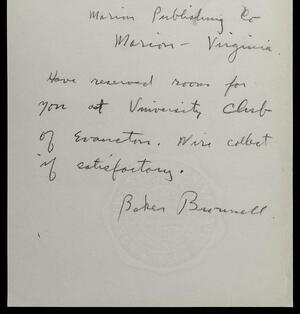 Marion Publishing Co
Marion - Virginia.
Have reserved room for
you at University Club
of Evanston. Wire collect
if satisfactory.
Baker Brownell